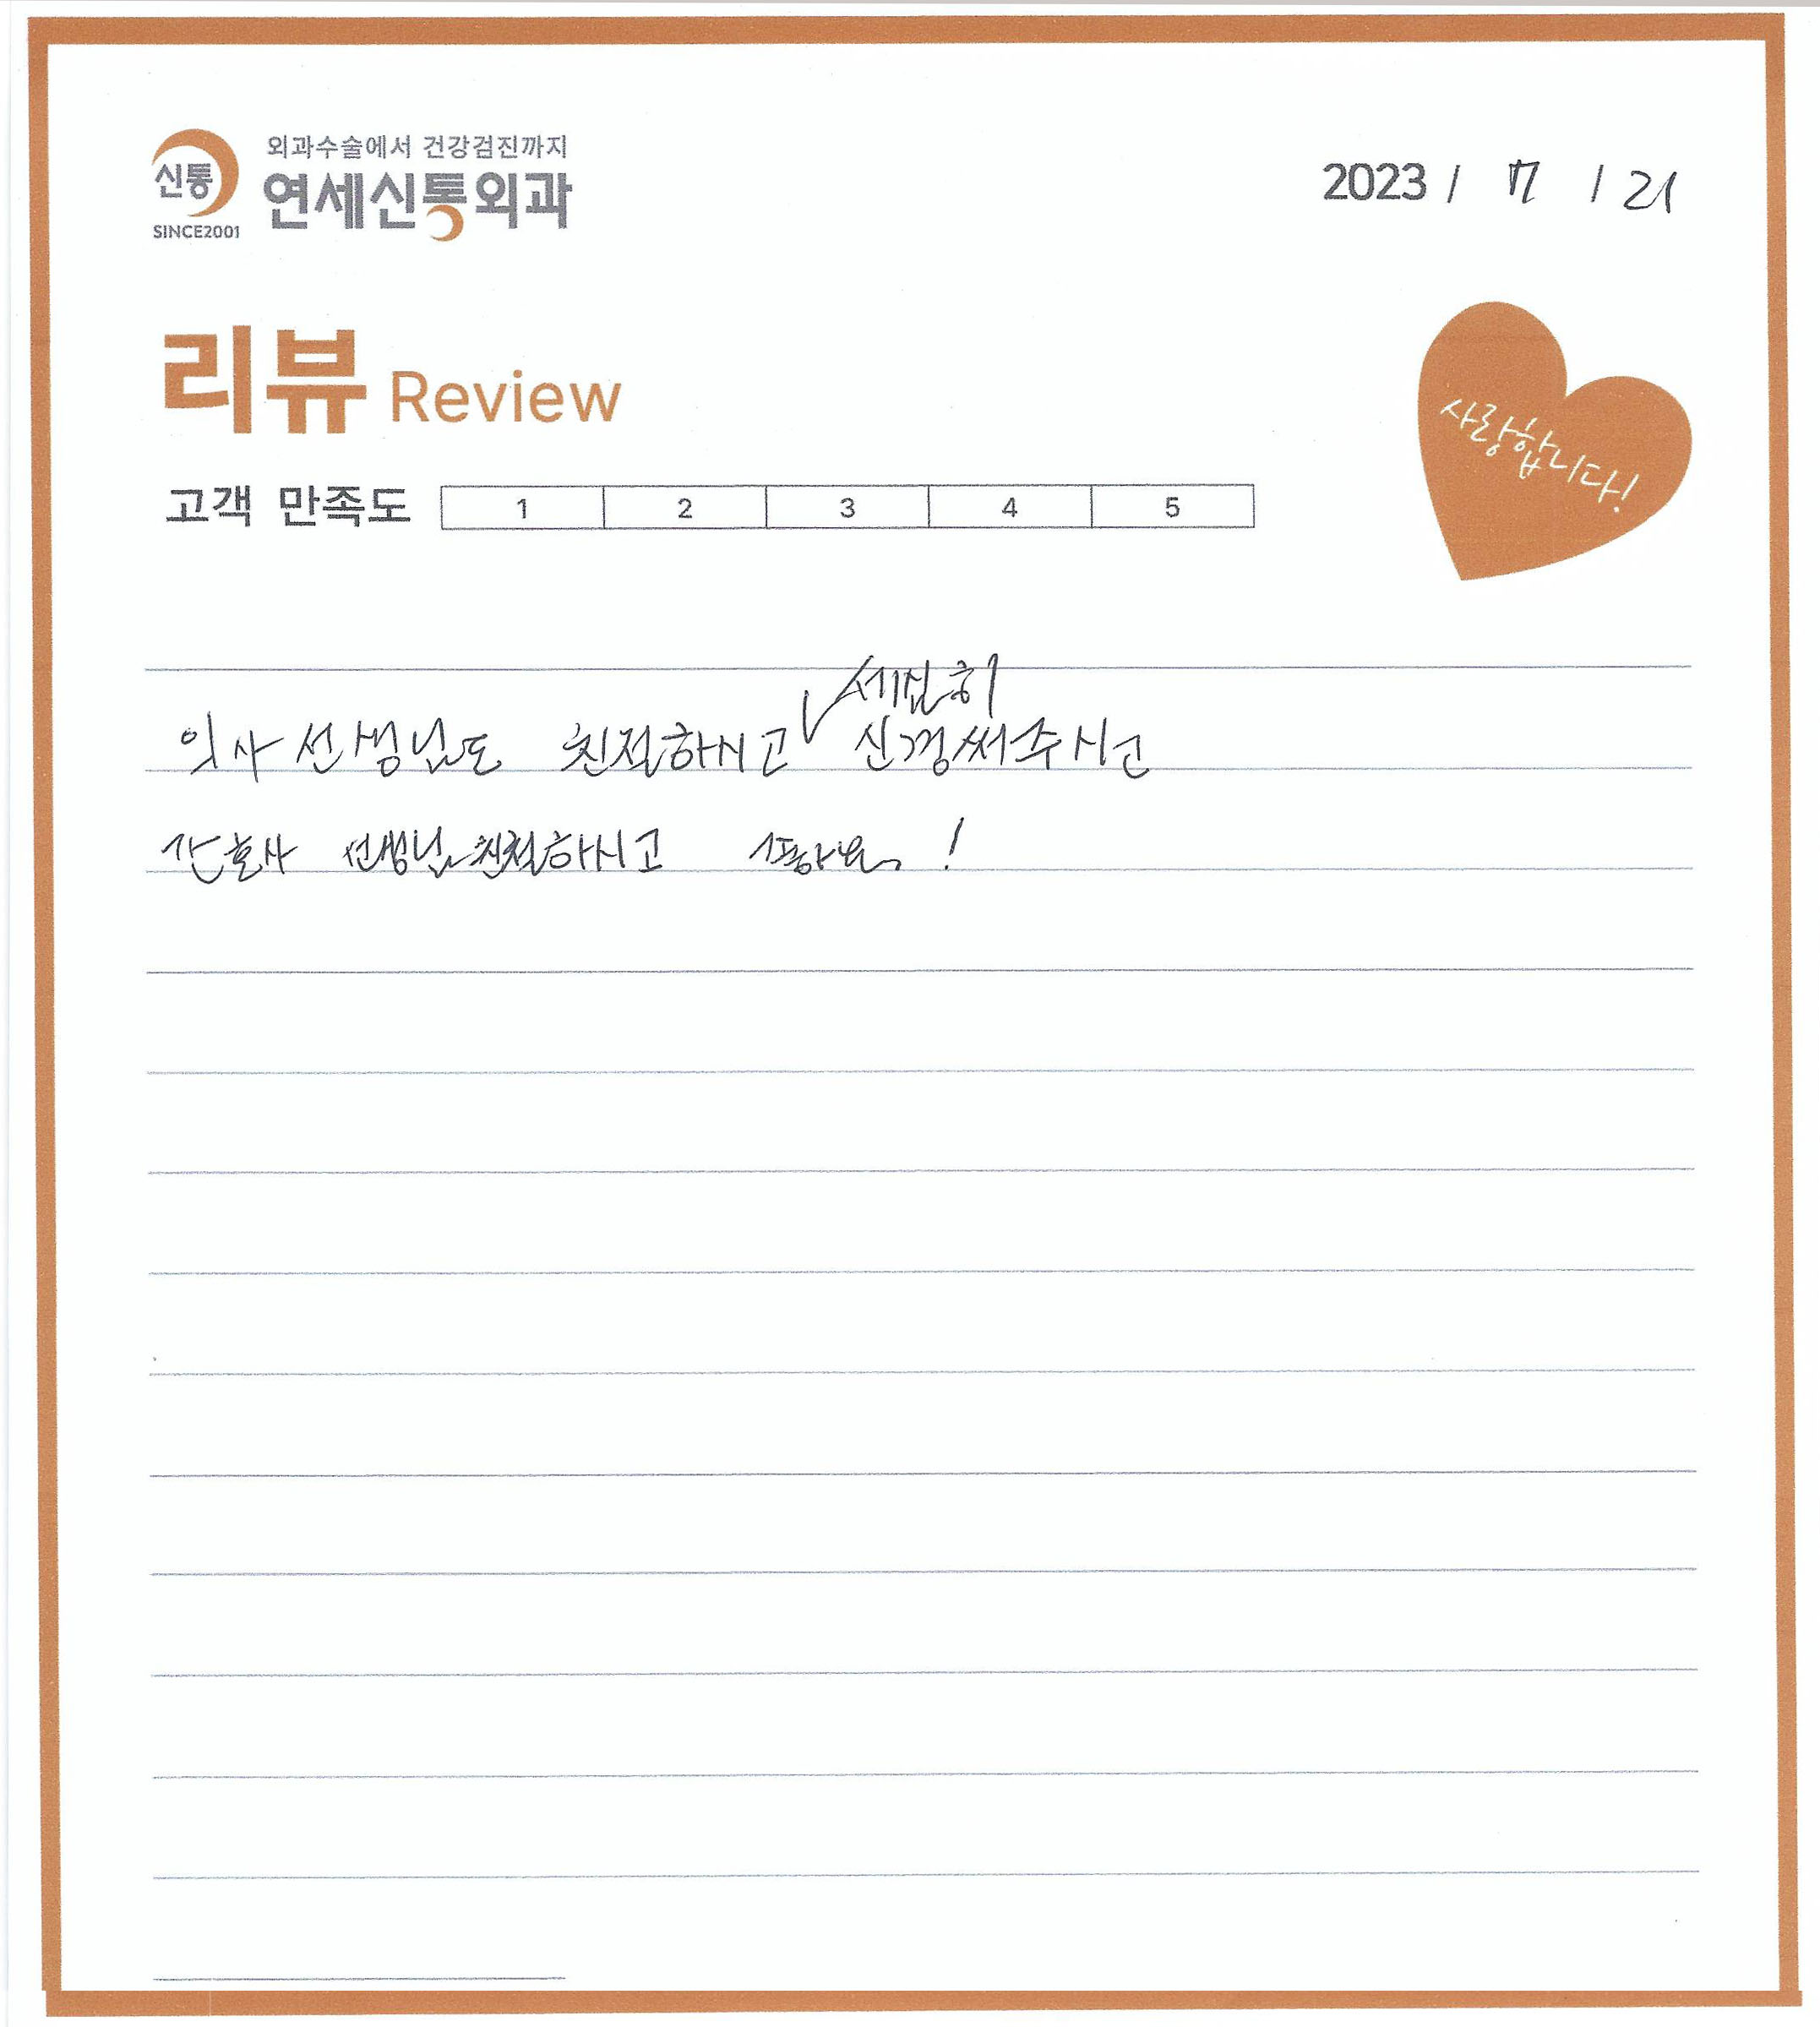 신통
SINCE2001
외과수술에서 건강검진까지
연세신통외과
2023 / 7 / 21
리뷰 Review
사랑합니다!
고객 만족도 1 2 3 4 5
세심히
의사 선생님도 친절하시고 신경써주시고
간호사 선생님 친절하시고 !